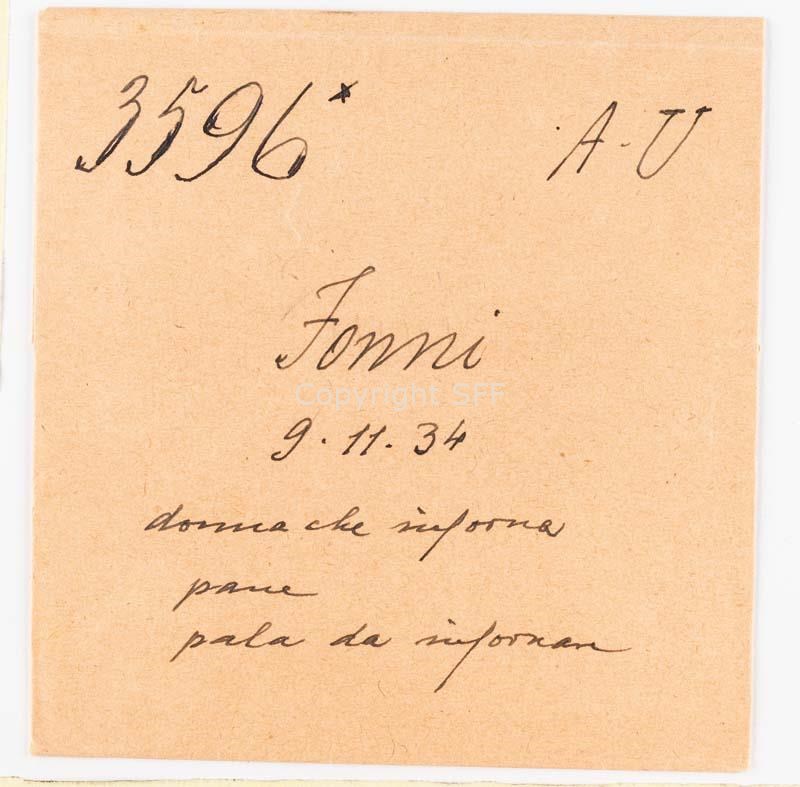 3596* A-U
Fonni
Copyright SFF
9.11.34
donna che inforna
pane
pala da infornare